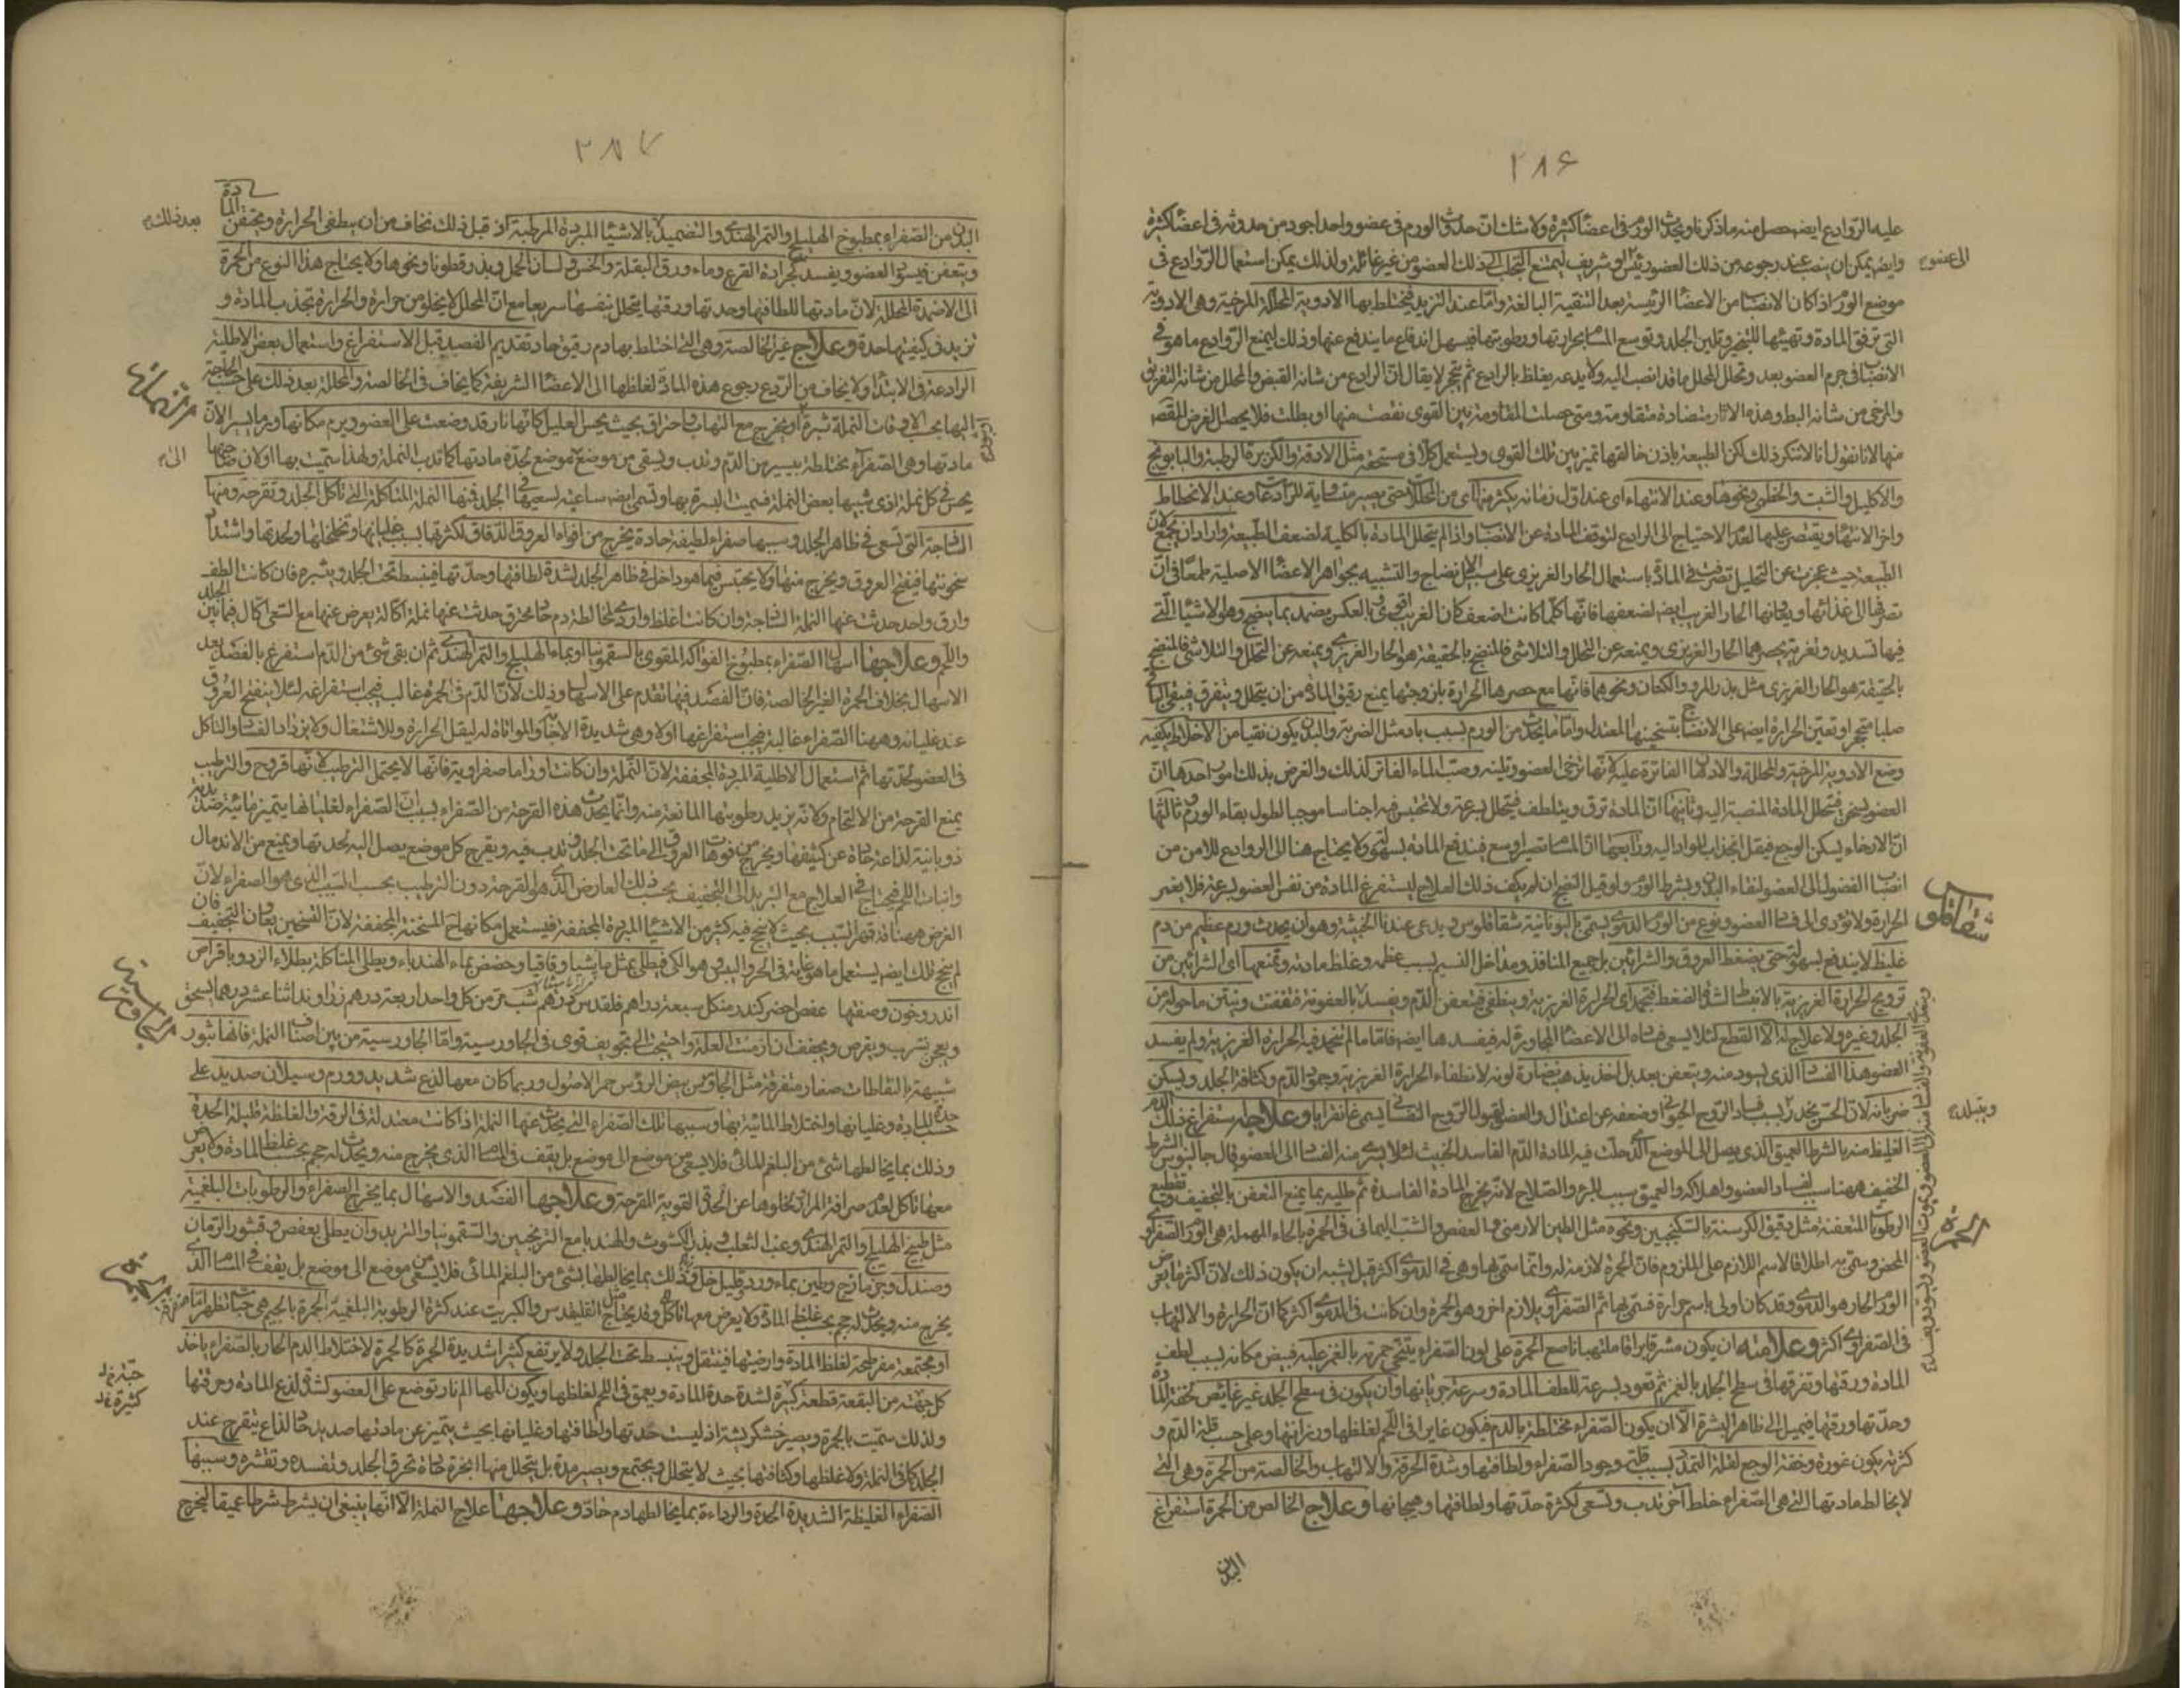 ٢٨٦
عليه الروادع ايضه حصل منه ما ذكرنا ويحدث الورم فى اعضا كثيرة ولا شك ان حدوث الورم فى عضو واحد اجود من حدوثه فى اعضا كثيرة
وايضه يمكن ان ينصب عند رجوعه من ذلك العضو رئيس او شريف ليمتنع التجلب الى ذلك العضو من غير غائلة ولذلك يمكن استعمال الروادع فى
موضع الورم اذا كان الانصباب من الاعضا الرئيسة بعد التنقية البالغة واما عند التزيد فيختلط بها الادوية المحللة المرخية وهى الادوية
التى ترقق المادة وتهيئها للتبخر وتلين الجلد وتوسع المسام بحرارتها ورطوبتها فيسهل اندفاع ما يندفع عنها وذلك ليمنع الروادع ما هو فى
الانصباب فى جرم العضو بعد وتحلل المحلل ما قد انصب اليه ولا يدعه يغلظ بالرادع ثم يتحجر لا يقال ان الرادع من شانه القبض والمحلل من شانه التفريق
والمرخى من شانه البط وهذه الاثار متضادة متقاومة ومتى حصلت المقاومة بين القوى نقصت منها او بطلت فلا يحصل الغرض المقصود
منها لانا نقول انا لا ننكر ذلك لكن الطبيعة باذن خالقها تميز بين تلك القوى ويستعمل كلا فى مستحقه مثل الادقة والكزبرة الرطبة والبابونج
والاكليل والشبت والخطمى ونحوها وعند الانتهاء اى عند اول زمانه يكثر منها اى من المحللات حتى يصير متساوية للرادعات وعند الانحطاط
واخر الانتهاء ويقتصر عليها لعدم الاحتياج الى الرادع لتوقف المادة عن الانصباب واذا لم يتحلل المادة بالكلية لضعف الطبيعة واراد ان يجمع لان
الطبيعة حيث عجزت عن التحليل تصرفت فى المادة باستعمال الحار الغريزى على سبيل الانضاج والتشبيه بجواهر الاعضا الاصلية طمعا فى ان
تصرفها الى غذائها ويعاونها الحار الغريب ايضه لضعفها فانها كلما كانت اضعف كان الغريب اقوى وبالعكس يضمد بما ينضج وهو الاشيا التى
فيها تسديد وتغرية بحصرها الحار الغريزى ويمنعه عن التحلل والتلاشى فالمنضج بالحقيقة هو الحار الغريزى ويمنعه عن التحلل والتلاشى فالمنضج
بالحقيقة هو الحار الغريزى مثل بذر المرو والكتان ونحوهما فانها مع حصرها الحرارة بلزوجتها يمنع رقيق المادة من ان يتحلل ويتفرق فيبقى الباقى
صلبا متحجرا وتعين الحرارة ايضه على الانضاج بتسخينها المعتدل واما ما يحدث من الورم بسبب باد مثل الضربة والبدن يكون نقيا من الاخلاط يكفيه
وضع الادوية المرخية والمحللة والادهان الفاترة عليه لانها ترخى العضو وتلينه وصب الماء الفاتر كذلك والغرض بذلك امور احدها ان
العضو يسخن فتحلل المادة المنصبة اليه وثانيها ان المادة ترق ويتلطف فيتحلل بسرعة ولا تحتبس فيه احتباسا موجبا لطول بقاء الورم وثالثها
ان الارخاء يسكن الوجع فيقل انجذاب المواد اليه ورابعها ان المسام تصير اوسع فيندفع المادة بسهولة ولا يحتاج هنا الى الروادع للامن من
انصباب الفضول الى العضو لنقاء البدن ويشرط الورم ولو قبل النضج ان لم يكف ذلك العلاج ليستفرغ المادة من نفس العضو بسرعة فلا يغمر
الحرارة ولا تؤدى الى فساد العضو ونوع من الورم الدموى يسمى باليونانية شقاقلوس ويدعى عندنا الخبيثة وهو ان يحدث ورم عظيم من دم
غليظ لا يندفع بسهولة حتى يضغط العروق والشرائين بل جميع المنافذ ومداخل النسيم بسبب عظمه وغلظ مادته وتمنعها اى الشرائين من
ترويح الحرارة الغريزية بالانبساط لشدة الضغط فيخمد اى الحرارة الغريزية وينطفى فيتعفن الدم ويفسد بالعفونة فتعفنت وينتن ما حوله من
الجلد وغيره ولا علاج له الا القطع لئلا يسعى فساده الى الاعضا المجاورة له فيفسدها ايضه فاما ما لم يخمد فيه الحرارة الغريزية ولم يفسد
العضو هذا الفساد الذى يسود منه ويتعفن بعد بل اخذ يذهب نضارة لونه لانطفاء الحرارة الغريزية وجمود الدم وكثافة الجلد ويسكن
ضربانه لان الحس يخدر بسبب فساد الروح الحيوانى او ضعفه عن اعتدال والعضو لقبول الروح النفسانى يسمى غانغرايا وعلاجه استفراغ ذلك الدم
الغليظ منه بالشرط العميق الذى يصل الى الموضع الذى حلت فيه المادة الدم الفاسد الخبيث لئلا يسرى منه الفساد الى العضو قال جالينوس الشرط
الخفيف ههنا سبب لفساد العضو واهلاكه والعميق سبب للبرء والصلاح لانه يخرج المادة الفاسدة ثم طليه بما يمنع التعفن بالتجفيف وتقطيع
الرطوبات المتعفنة مثل دقيق الكرسنة بالسكنجبين ونحوه مثل الطين الارمنى والعفص والشب اليمانى فى الحمرة بالحاء المهملة هى الورم الصفراوى
المحض وسمى به اطلاقا لاسم اللازم على الملزوم فان الحمرة لازمة له وانما سمى بها وهى فى الدموى اكثر قيل يشبه ان يكون ذلك لان اكثر ما يعرض
الورم الحار هو الدموى وقد كان اولى باسم حرارة فسمى بها ثم الصفراوى بلازم اخر وهو الحمرة وان كانت فى الدموى اكثر كما ان الحرارة والالتهاب
فى الصفراوى اكثر وعلامته ان يكون مشرقا براقا ملتهبا ناصع الحمرة على لون الصفراء يتنحى حمرته بالغمز عليه فيبيض مكانه بسبب لطف
المادة ورقتها وتفرقها فى سطح الجلد بالغمز ثم تعود بسرعة للطف المادة وسرعة جريانها وان يكون فى سطح الجلد غير غايص لخفة المادة
وحدتها ورقتها فيميل الى ظاهر البشرة الا ان يكون الصفراء مختلطة بالدم فيكون غايرا فى اللحم لغلظها ورزانتها وعلى حسب قلة الدم و
كثرته يكون غوره وخفة الوجع لقلة التمدد بسبب قلته وجود الصفراء ولطافتها وشدة الحرقة والالتهاب والخالصة من الحمرة وهى التى
لا يخالط مادتها التى هى الصفراء خلط آخر تدب وتسعى لكثرة حدتها ولطافتها وهيجانها وعلاج الخالص من الحمرة استفراغ
البدن
الى عضو
شقاقلوس
ويتبلد
الحمرة
٢٨٧
البدن من الصفراء بمطبوخ الهليلج والتمر الهندى والتضميد بالاشيا المبردة المرطبة اذ قبل ذلك نخاف من ان يطفى الحرارة ويحتقن المادة
ويتعفن فيسود العضو ويفسد كجرادة القرع وماء ورق البقلة والخس ولسان الحمل وبذر قطونا ونحوها ولا يحتاج هذا النوع من الحمرة
الى الاضمدة المحللة لان مادتها للطافتها وحدتها ورقتها يتحلل بنفسها سريعا مع ان المحلل لا يخلو من حرارة والحرارة تجذب المادة و
تزيد فى كيفيتها حدة وعلاج غير الخالصة وهى التى اختلط بها دم رقيق حاد تقديم الفصد قبل الاستفراغ واستعمال بعض الاطلية
الرادعة فى الابتداء ولا يخاف من الردع رجوع هذه المادة لغلظها الى الاعضا الشريفة كما يخاف فى الخالصة والمحللة بعد ذلك على حسب الحاجة
اليها بحب الاوقات النملة بثرة او بثور يخرج مع التهاب واحتراق بحيث يحس العليل كانها نار قد وضعت على العضو ويرم مكانها ورما يسيرا لان
مادتها وهى الصفراء مختلطة بيسير من الدم وتدب ويسعى من موضع الى موضع لحدة مادتها كما تدب النملة ولهذا سميت بها او لان صاحبها
يحس فى كل نملة اذى شبيها بعض النملة فسميت البثرة بها وتسمى ايضه ساعية لسعيها فى الجلد فمنها النملة المتاكلة التى تاكل الجلد وتقرحه ومنها
الساجة التى تسعى فى ظاهر الجلد وسببها صفراء لطيفة حادة يخرج من افواه العروق الدقاق لكثرتها بسبب غليانها وتخلخلها ولحدتها واشتداد
سخونتها فيفتح العروق ويخرج منها ولا يحتبس فيما هو داخل فى ظاهر الجلد لشدة لطافتها وحدتها فينبسط تحت الجلد ويبثره فان كانت الطف
وارق واحد حدثت عنها النملة الساجة وان كانت اغلظ واردى لمخالطة دم حاد محترق حدثت عنها نملة اكالة يعرض عنها مع السعى تاكل فيما بين الجلد
واللحم وعلاجها اسهال الصفراء بمطبوخ الفواكه المقوى بالسقمونيا او بماء الهليلج والتمر الهندى ثم ان بقى شئ من الدم استفرغ بالفصد بعد
الاسهال بخلاف الحمرة الغير الخالصة فان الفصد فيها تقدم على الاسهال وذلك لان الدم فى الحمرة غالب فيجب استفراغه لئلا ينفتح العروق
عند غليانه وههنا الصفراء غالبة فيجب استفراغها اولا وهى شديدة الاجابة والمواتاة له ليقل الحرارة وللاشتعال ولا يزداد الفساد والتاكل
فى العضو لحدتها ثم استعمال الاطلية المبردة المجففة لان النملة وان كانت اوراما صفراوية فانها لا يحتمل الترطيب لانها قروح والترطيب
يمنع القرحة من الالتحام ولانه يزيد رطوبتها المانعة منه وانما يحدث هذه القرحة من الصفراء بسبب ان الصفراء لغليانها يتميز مائية صديدية
ذوبانية لذاعة حادة عن كثيفها ويخرج من فوهات العروق الى ما تحت الجلد وتدب فيه ويقرح كل موضع يصل اليه لحدتها ويمنع من الاندمال
وانبات اللحم فيحتاج فى العلاج مع التبريد الى التجفيف بحسب ذلك العارض الذى هو القرحة دون الترطيب بحسب السبب الذى هو الصفراء لان
الغرض ههنا قد قهر السبب بحيث لا ينجح فيه كثير من الاشيا المبردة المجففة فيستعمل مكانها المسخنة المجففة لان التسخين يعاون التجفيف فان
لم ينجح تلك ايضه يستعمل ما هو غاية فى الحر واليبس وهو الكى فيطلى بمثل ماميثا واقاقيا وحضض بماء الهندباء ويطلى المتاكلة بطلاء الزرد وباقراص
اندروخون وصفتها عفص اخضر كندر من كل سبعة دراهم قلقديس درهم شب مر من كل واحد اربعة درهم زراوند اثنا عشر درهما يسحق
ويعجن بشرب ويقرص ويجفف ان ازمنت العلة واحتيجت الى تجفيف قوى فى الجاورسية واما الجاورسية من بين اصناف النملة فانها بثور
شبيهة بالنقاطات صغار متفرقة مثل الجاورس بيض الرؤس حمر الاصول وربما كان معها لذع شديد وورم وسيلان صديد على
حسب حدة المادة وغليانها ولختلاط المائية بها وسببها تلك الصفراء التى يحدث عنها النملة اذا كانت معتدلة فى الرقة والغلظة قليلة الحدة
وذلك بما يخالطها شئ من البلغم المائى فلا يسعى من موضع الى موضع بل يقف فى المسام الذى يخرج منه ويحدث له حجم بحسب غلظ المادة ولا يعرض
معها تاكل لعدم صرافة المرار لخلوها عن الحدة القوية المقرحة وعلاجها الفصد والاسهال بما يخرج الصفراء والرطوبات البلغمية
مثل طبيخ الهليلج والتمر الهندى وعنب الثعلب وبذر الكشوث والهندبا مع الترنجبين والسقمونيا والتربد وان يطلى بعفص وقشور الرمان
وصندل وجزمازج وطين بماء ورد وقليل خل وذلك بما يخالطها شئ من البلغم المائى فلا يسعى من موضع الى موضع بل يقف فى المسام الذى
يخرج منه ويحدث له حجم بحسب غلظ المادة ولا يعرض معها تاكل وقد يحتاج الى مثل القليفديس والكبريت عند كثرة الرطوبة البلغمية الجمرة بالجيم هى حبات تظهر اما متفرقة
او مجتمعة مفرطحة لغلظ المادة وارضيتها فيثقل وينبسط تحت الجلد ولا يرتفع كثيرا شديدة الحمرة كالجمرة لاختلاط الدم الحار بالصفراء ياخذ
كل جهة من البقعة قطعة كبيرة لشدة حدة المادة ويعمق فى اللحم لغلظها ويكون المها الم نار توضع على العضو لشدة لذع المادة وحرقتها
ولذلك سميت بالجمرة ويصير خشكريشة اذ ليست حدتها ولطافتها وغليانها بحيث يتميز عن مادتها صديد حاد لذاع يتقرح عند
الجلد كما فى النملة ولا غلظها وكثافتها بحيث لا يتحلل ويجتمع ويصير مدة بل يتحلل منها ابخرة حادة تحرق الجلد وتفسده وتقشره وسببها
الصفراء الغليظة الشديدة الحدة والرداءة بما يخالطها دم حاد وعلاجها علاج النملة الا انها ينبغى ان يشرط شرطا عميقا ليخرج
بعد ذلك
الى
الجاورسية
الجمرة